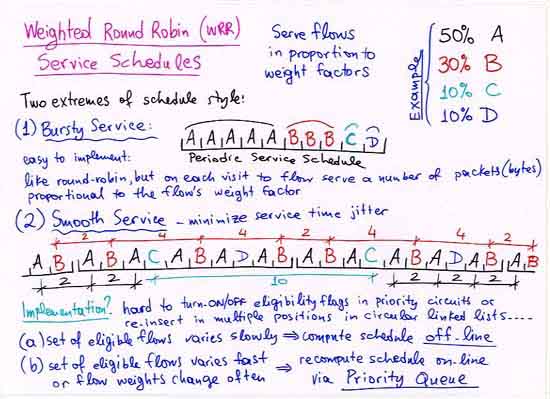 Weighted Round Robin (WRR)
Service Schedules
Serve flows
in proportion to
weight factors
Example
50% A
30% B
10% C
10% D
Two extremes of schedule style:
(1) Bursty Service:
A A A A A B B B C D
Periodic Service Schedule
easy to implement:
like round-robin, but on each visit to flow serve a number of packets (bytes)
proportional to the flow's weight factor
(2) Smooth Service - minimize service time jitter
2 4 4 4 4 2
A B A B A C A B A D A B A B A C A B A D A B A B
2 2 10 2 2
Implementation? hard to turn-ON/OFF eligibility flags in priority circuits or
re-insert in multiple positions in circular linked lists.....
(a) set of eligible flows varies slowly ⇒ compute schedule off-line
(b) set of eligible flows varies fast ⇒ recompute schedule on-line
or flow weights change often via Priority Queue